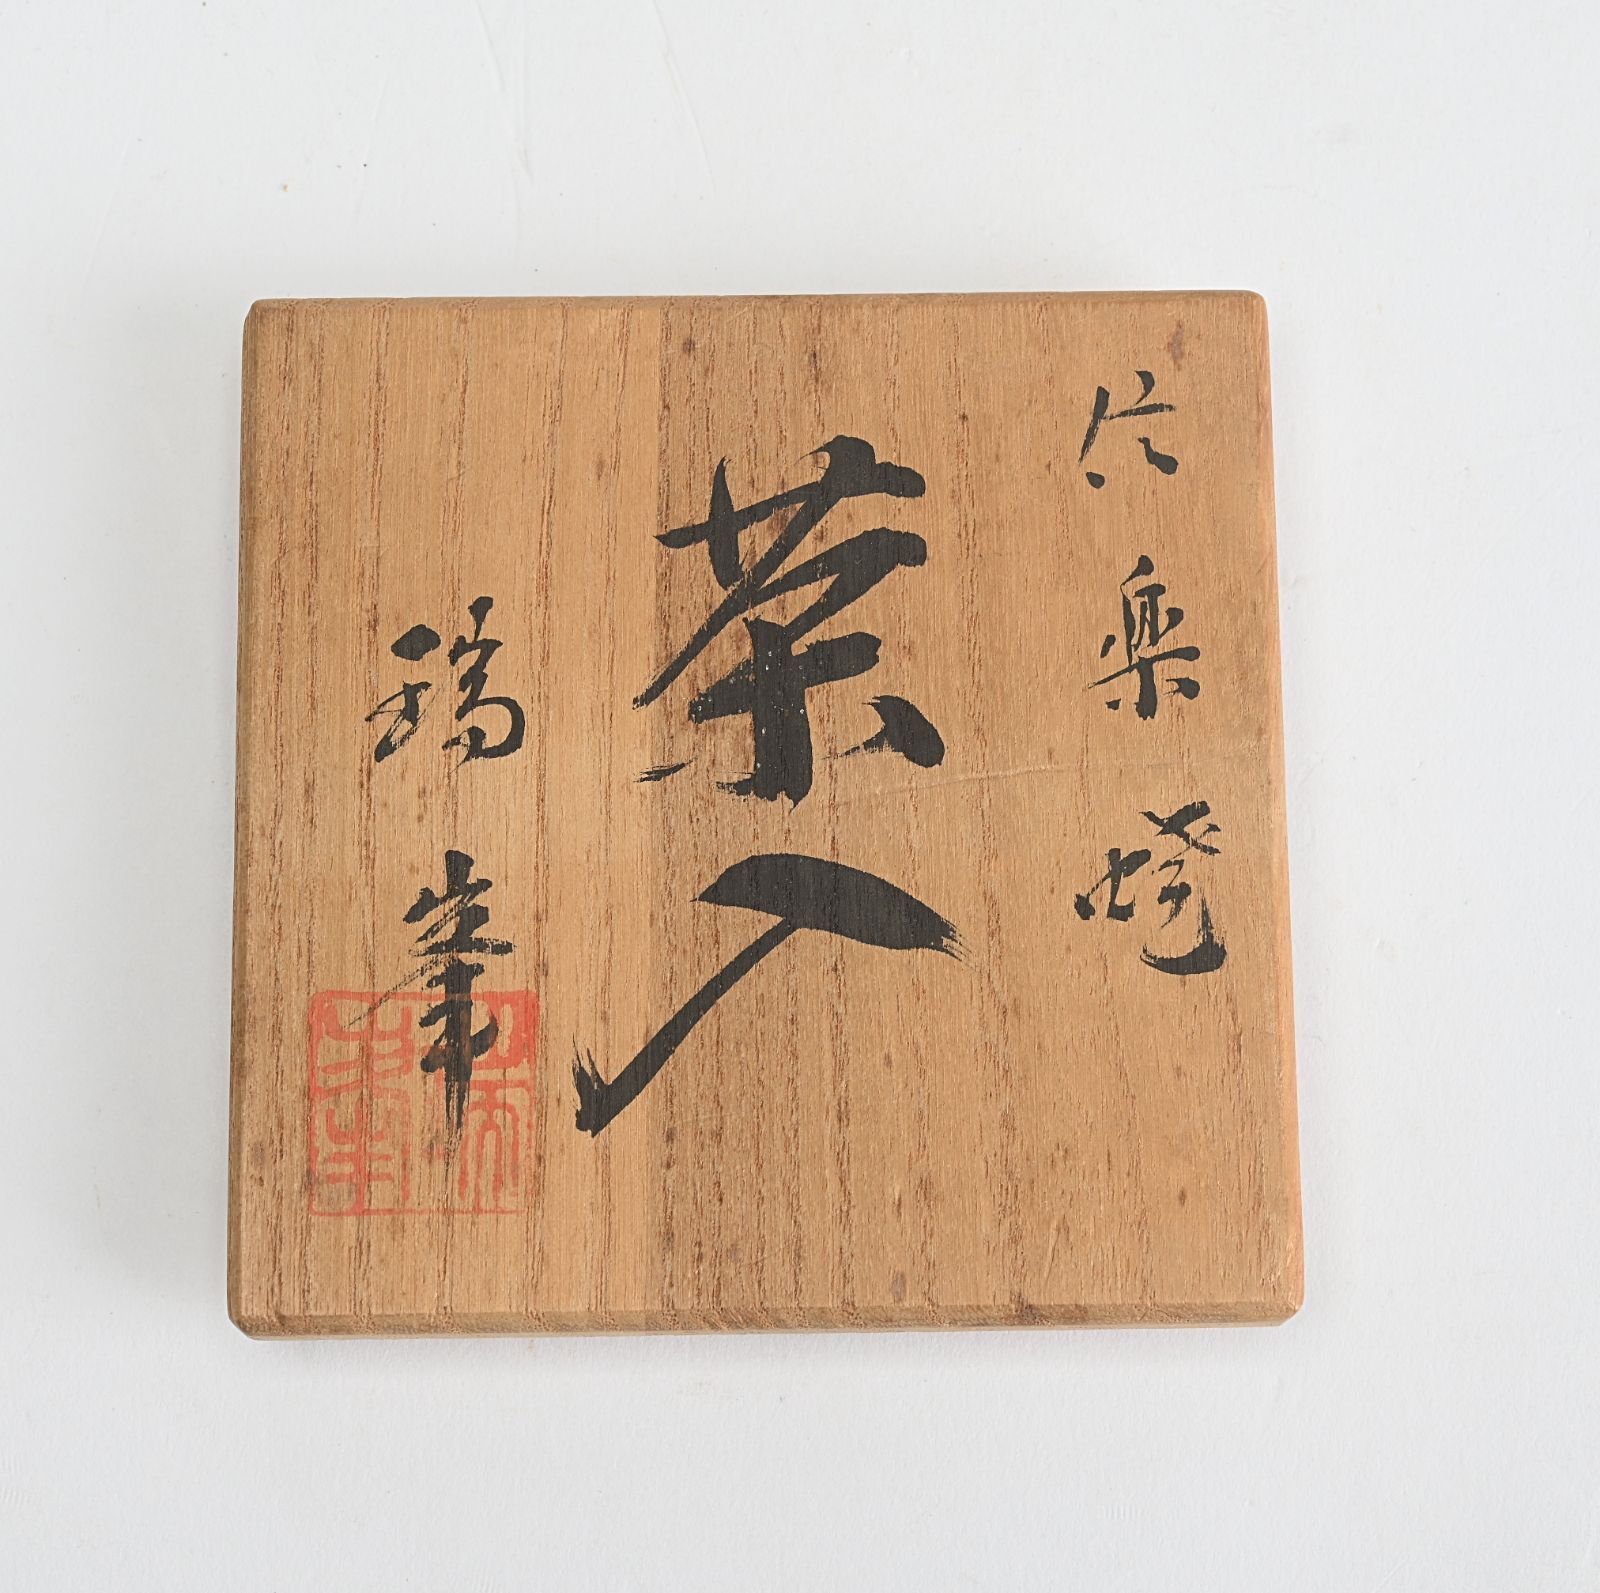 信楽焼
茶入
瑞峯